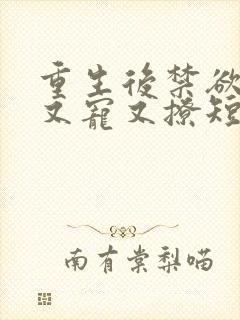 重生後禁欲
又寵又撩短
南有棠梨喵